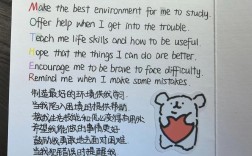 Make the best environment for me to study.
Offer help when I get into the trouble.
Teach me life skills and how to be useful.
Hope that the things I can do are better.
Encourage me to be brave to face difficulty.
Remind me when I make some mistakes.
创造最好的环境供我学习
当我陷入困境时提供帮助
教我生活技能和怎么变得有用
希望我能做的事情更好
鼓励我勇敢地去面对困难
当我犯错误时提醒我